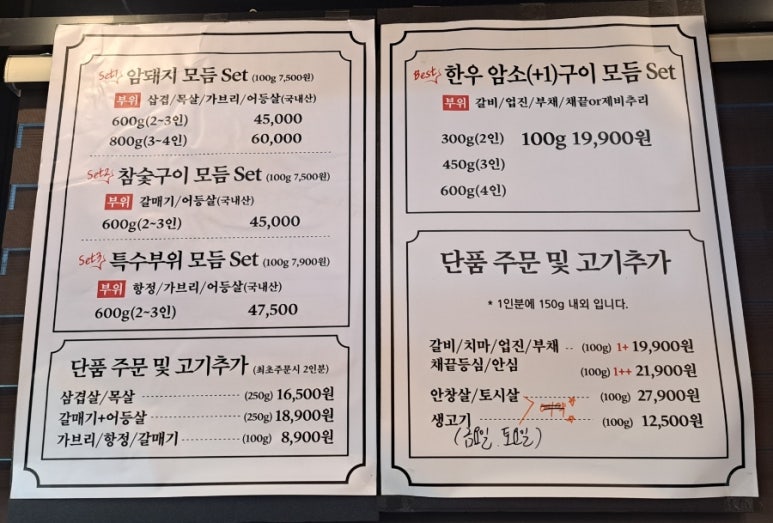 Set 암돼지 모듬 Set (100g 7,500원)
부위 삼겹/목살/가브리/어등살(국내산)
600g(2~3인) 45,000
800g(3~4인) 60,000
Set 참숯구이 모듬 Set (100g 7,500원)
부위 갈매기/어등살(국내산)
600g(2~3인) 45,000
Set 특수부위 모듬 Set (100g 7,900원)
부위 항정/가브리/어등살(국내산)
600g(2~3인) 47,500
단품 주문 및 고기추가 (최초주문시 2인분)
삼겹살/목살 (250g) 16,500원
갈매기+어등살 (250g) 18,900원
가브리/항정/갈매기 (100g) 8,900원
Best 한우 암소(+1)구이 모듬 Set
부위 갈비/업진/부채/채끝or제비추리
300g(2인) 100g 19,900원
450g(3인)
600g(4인)
단품 주문 및 고기추가
* 1인분에 150g 내외 입니다.
갈비/치마/업진/부채 (100g) 1+ 19,900원
채끝등심/안심 (100g) 1++ 21,900원
안창살/토시살 (100g) 27,900원
생고기 (100g) 12,500원
(금요일, 토요일)